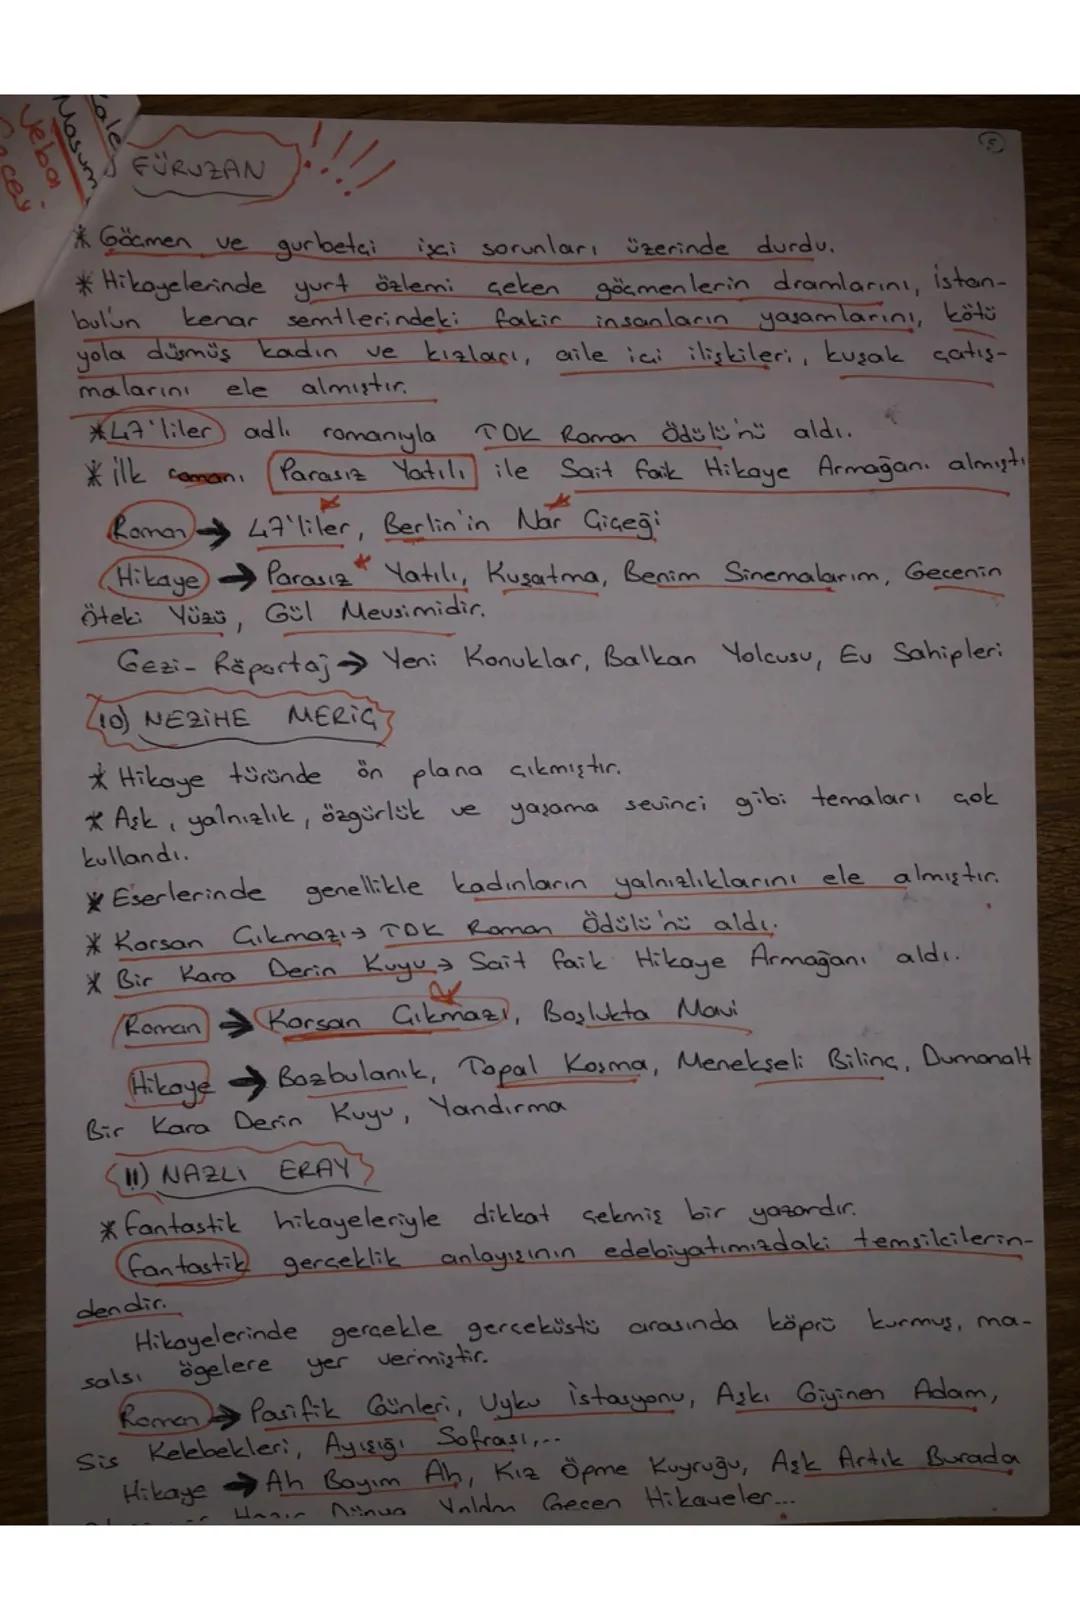 FÜRUZAN !!!!
* Göçmen ve gurbetçi işçi sorunları üzerinde durdu.
* Hikayelerinde yurt özlemi çeken göçmenlerin dramlarını, İstan-
bul'un kenar semtlerindeki fakir insanların yaşamlarını, kötü
yola düşmüş kadın ve kızları, aile içi ilişkileri, kuşak çatış-
malarını ele almıştır.
* 47'liler adlı romanıyla TDK Roman Ödülü'nü aldı.
* İlk romanı Parasız Yatılı ile Sait Faik Hikaye Armağanı almıştı
Roman → 47'liler, Berlin'in Nar Çiçeği
Hikaye → Parasız Yatılı, Kuşatma, Benim Sinemalarım, Gecenin
Öteki Yüzü, Gül Mevsimidir.
Gezi- Röportaj → Yeni Konuklar, Balkan Yolcusu, Ev Sahipleri
10) NEZİHE MERİÇ
* Hikaye türünde ön plana çıkmıştır.
* Aşk, yalnızlık, özgürlük ve yaşama sevinci gibi temaları çok
kullandı.
* Eserlerinde genellikle kadınların yalnızlıklarını ele almıştır.
* Korsan Çıkmazı → TDK Roman Ödülü'nü aldı.
* Bir Kara Derin Kuyu → Sait Faik Hikaye Armağanı aldı.
Roman → Korsan Çıkmazı, Boşlukta Mavi
Hikaye → Bozbulanık, Topal Koşma, Menekşeli Bilinç, Dumanaltı
Bir Kara Derin Kuyu, Yandırma
11) NAZLI ERAY
* Fantastik hikayeleriyle dikkat çekmiş bir yazardır.
Fantastik gerçeklik anlayışının edebiyatımızdaki temsilcilerin-
dendir.
Hikayelerinde gerçekle gerçeküstü arasında köprü kurmuş, ma-
salsı ögelere yer vermiştir.
Roman → Pasifik Günleri, Uyku İstasyonu, Aşkı Giyinen Adam,
Sis Kelebekleri, Ayışığı Sofrası,...
Hikaye → Ah Bayım Ah, Kız Öpme Kuyruğu, Aşk Artık Burada
Hazır Dünya Yoldan Geçen Hikayeler...